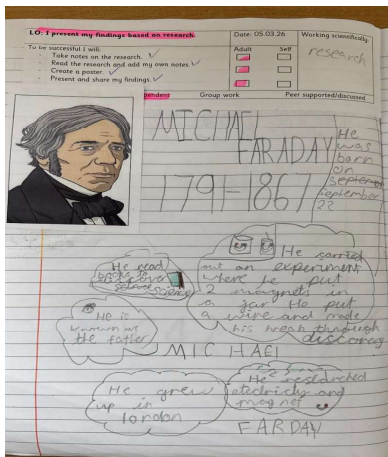 LO: I present my findings based on research.
Date: 05.03.26
Working scientifically:
research
To be successful I will:
Adult Self
- Take notes on the research. ✓
- Read the research and add my own notes. ✓
- Create a poster. ✓
- Present and share my findings. ✓
pendent Group work Peer supported/discussed
MICHAEL
FARADAY
1791-1867
He
was
born
on
September
22
He read
books to
discover
science
He carried
out an experiment
where He put
2 magnets in
a jar He put
a wire and made
his break through
discovery
He is
known as
the father
MICHAEL
He grew
up in
london
He researched
electricity and
magnet
FARDAY